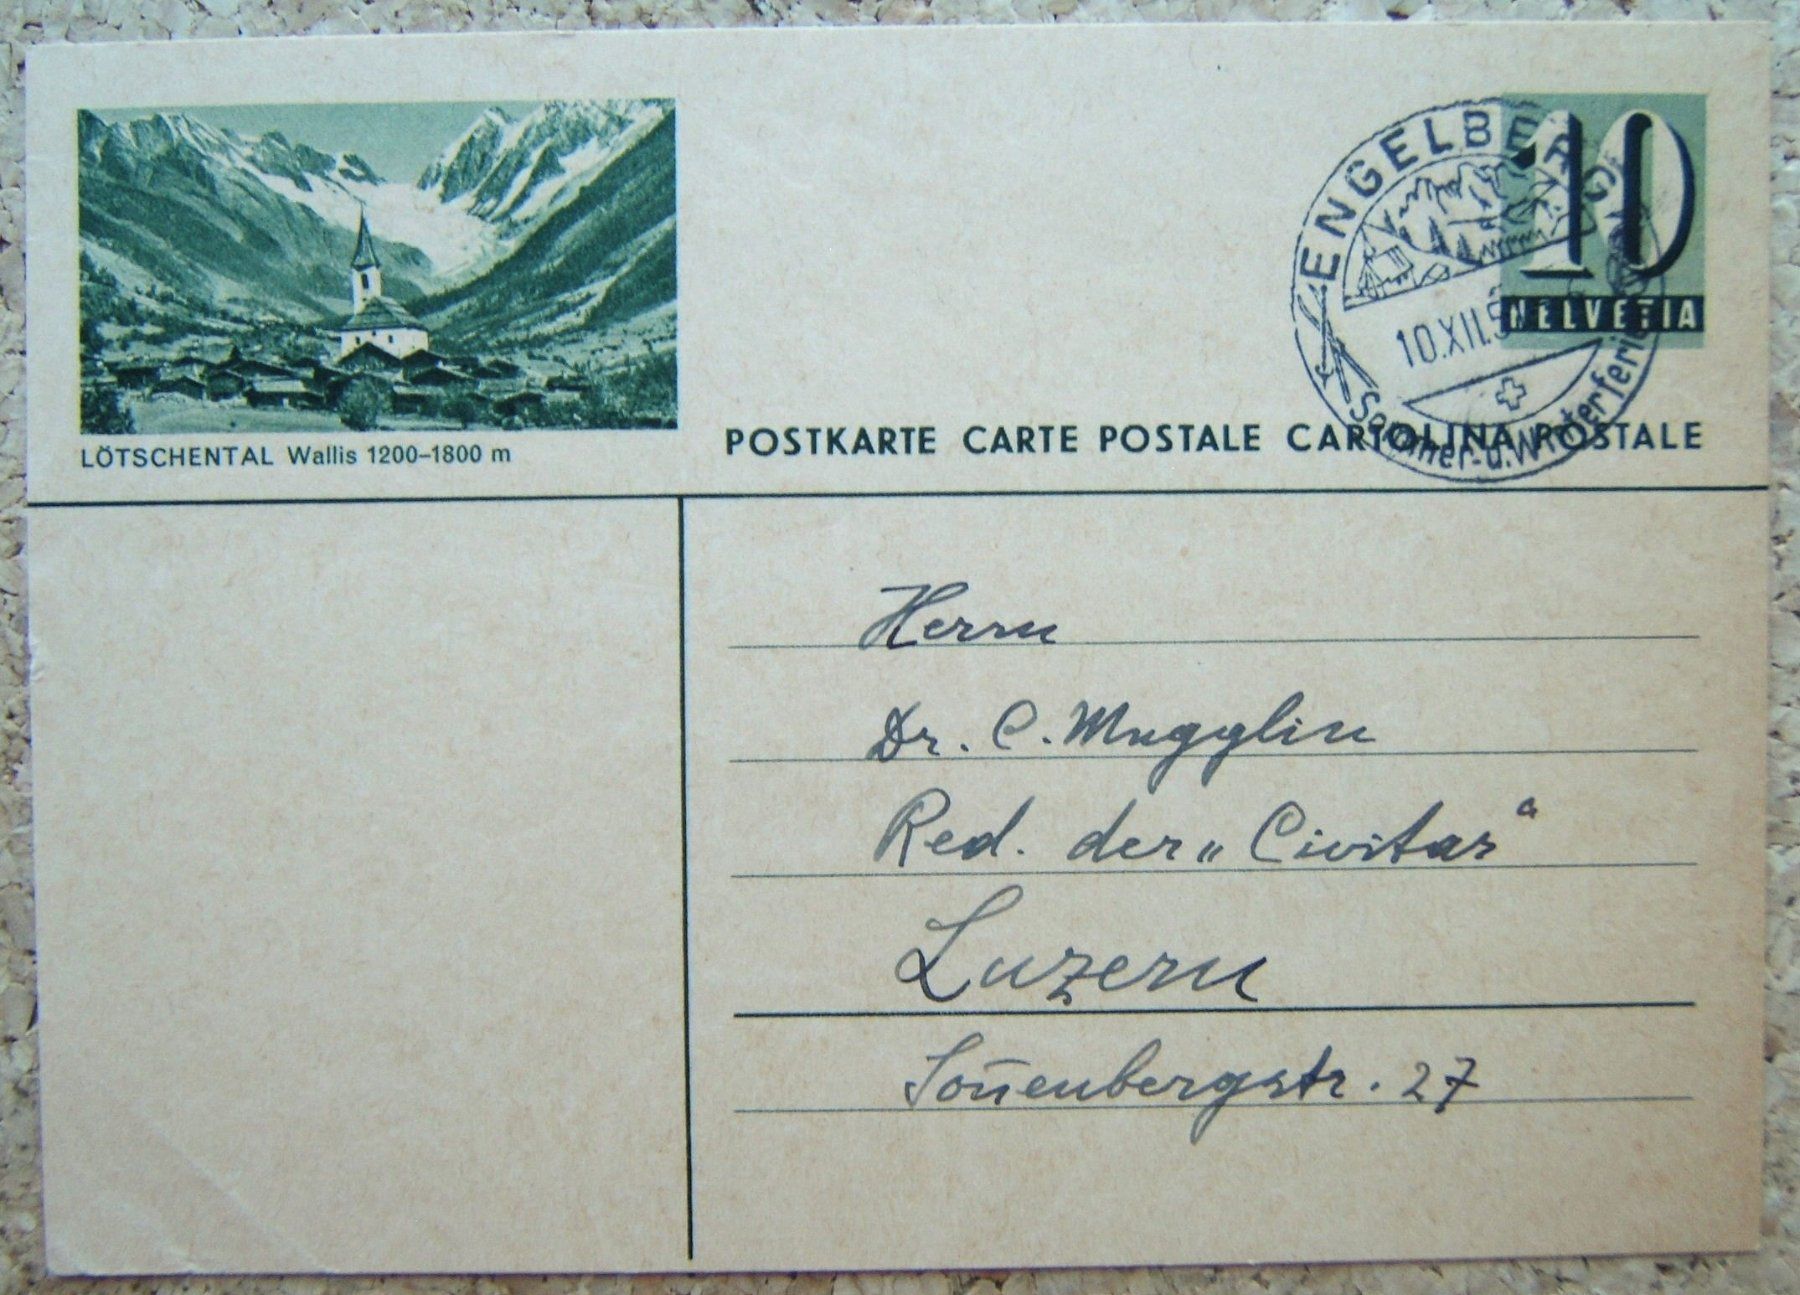 LÖTSCHENTAL Wallis 1200–1800 m
ENGELBERG
10
HELVETIA
10.XII.5
Sommer- u. Winterferien
POSTKARTE CARTE POSTALE CARTOLINA POSTALE
Herrn
Dr. C. Mugglin
Red. der „Civitas“
Luzern
Son̄enbergstr. 27